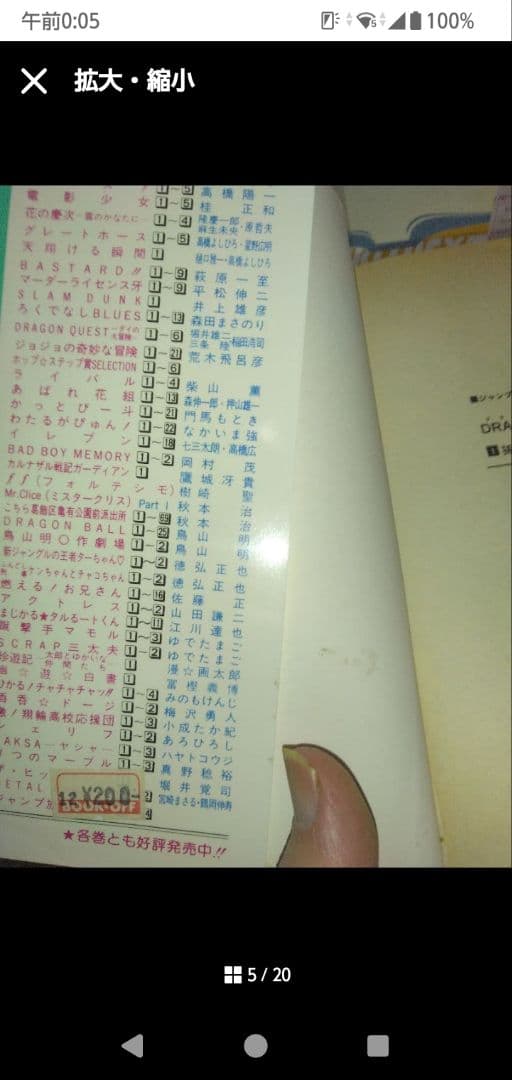 午前0:05
100%
拡大・縮小
電影少女 1~5 桂正和
花の慶次―雲のかなたに― 1~4 隆慶一郎・原哲夫 麻生未央
グレートホース 1~5 高橋よしひろ・星野広明
天翔ける瞬間 1 樋口雅一・高橋よしひろ
BASTARD!! 1~9 萩原一至
マーダーライセンス牙 1~9 平松伸二
SLAM DUNK 1 井上雄彦
ろくでなしBLUES 1~13 森田まさのり
DRAGON QUEST―ダイの大冒険― 1~6 堀井雄二 三条陸 稲田浩司
ジョジョの奇妙な冒険 1~21 荒木飛呂彦
ホップ☆ステップ賞SELECTION 1~6
ライバル 1~4 柴山薫
あばれ花組 1~13 森伸一郎・押山雄一
かっとび一斗 1~21 門馬もとき
わたるがぴゅん! 1~22 なかいま強
イレブン 1~18 七三太朗・高橋広
BAD BOY MEMORY 1~2 岡村茂
カルナザル戦記ガーディアン 1 鷹城冴貴
ff(フォルテシモ) 樹崎聖
Mr.Clice(ミスタークリス) Part 1 秋本治
こちら葛飾区亀有公園前派出所 1~69 秋本治
DRAGON BALL 1~25 鳥山明
鳥山明○作劇場 1~2 鳥山明
新ジャングルの王者ターちゃん♡ 1~2 徳弘正也
ケンちゃんとチャコちゃん 1~2 徳弘正也
燃える!お兄さん 1~16 佐藤正
アクトレス 1~2 山田謙二
まじかる★タるるートくん 1~11 江川達也
蹴撃手マモル 1~3 ゆでたまご
SCRAP三太夫 1~2 ゆでたまご
珍遊記―太郎とゆかいな仲間たち 1 漫☆画太郎
幽☆遊☆白書 1 冨樫義博
ひかる!チャチャチャッ!! 1~4 みのもけんじ
香香☆ドージ 1~2 梅沢勇人
激!翔輪高校応援団 1~3 小成たか紀
シェリフ 1~2 あろひろし
AKSA―ヤシャ― 1~3 ハヤトコウジ
つのマーブル 1~3 真野稔裕
堀井覚司
ETAL
宮崎まさる・鶴岡伸寿
12 ¥200-
BOOK・OFF
★各巻とも好評発売中!!
ジャンプ
DRA
1
5 / 20